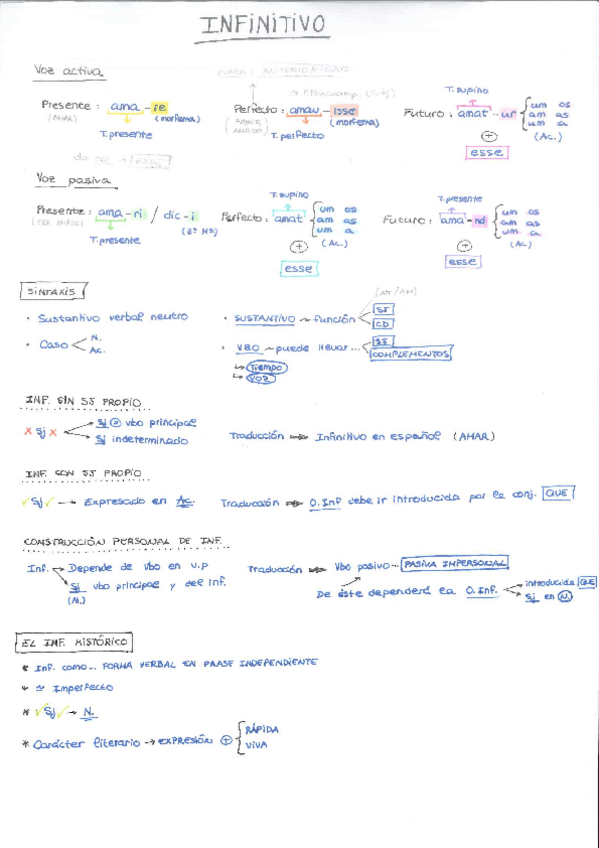 INFINITIVO
Voz activa
ANTERIORIDAD
Presente : ama-re (morfema)
(AMAR)
T. presente
Perfecto : amav-isse (morfema)
(HABER AMADO)
T. perfecto
T. supino
Futuro : amat-ur um os
am as
um a
(Ac.)
+
esse
Voz pasiva
Presente : ama-ri / dic-i
T. presente
T. supino
Perfecto : amat um os
am as
um a
(Ac.)
+
esse
T. presente
Futuro : ama-nd um os
am as
um a
(Ac.)
+
esse
SINTAXIS
• Sustantivo verbal neutro
• Caso N.
Ac.
• SUSTANTIVO ~ función SJ
CD
• VBO ~ puede llevar... SJ
COMPLEMENTOS
Tiempo
VOZ
INF. SIN SJ PROPIO
x Sj x Sj = vbo principal
Sj indeterminado
Traducción Infinitivo en español (AMAR)
INF. CON SJ PROPIO
✓Sj✓ → Expresado en Ac.
Traducción O.Inf debe ir introducida por la conj. QUE
CONSTRUCCIÓN PERSONAL DE INF.
Inf. Depende de vbo en v.p
Sj vbo principal y del Inf.
(N.)
Traducción Vbo pasivo - PASIVA IMPERSONAL
De éste dependerá la O.Inf. introducida QUE
Sj en N.
EL INF. HISTÓRICO
* Inf. como... FORMA VERBAL EN FRASE INDEPENDIENTE
* ≃ Imperfecto
* ✓Sj✓ → N.
* Carácter literario → EXPRESIÓN + RÁPIDA
VIVA